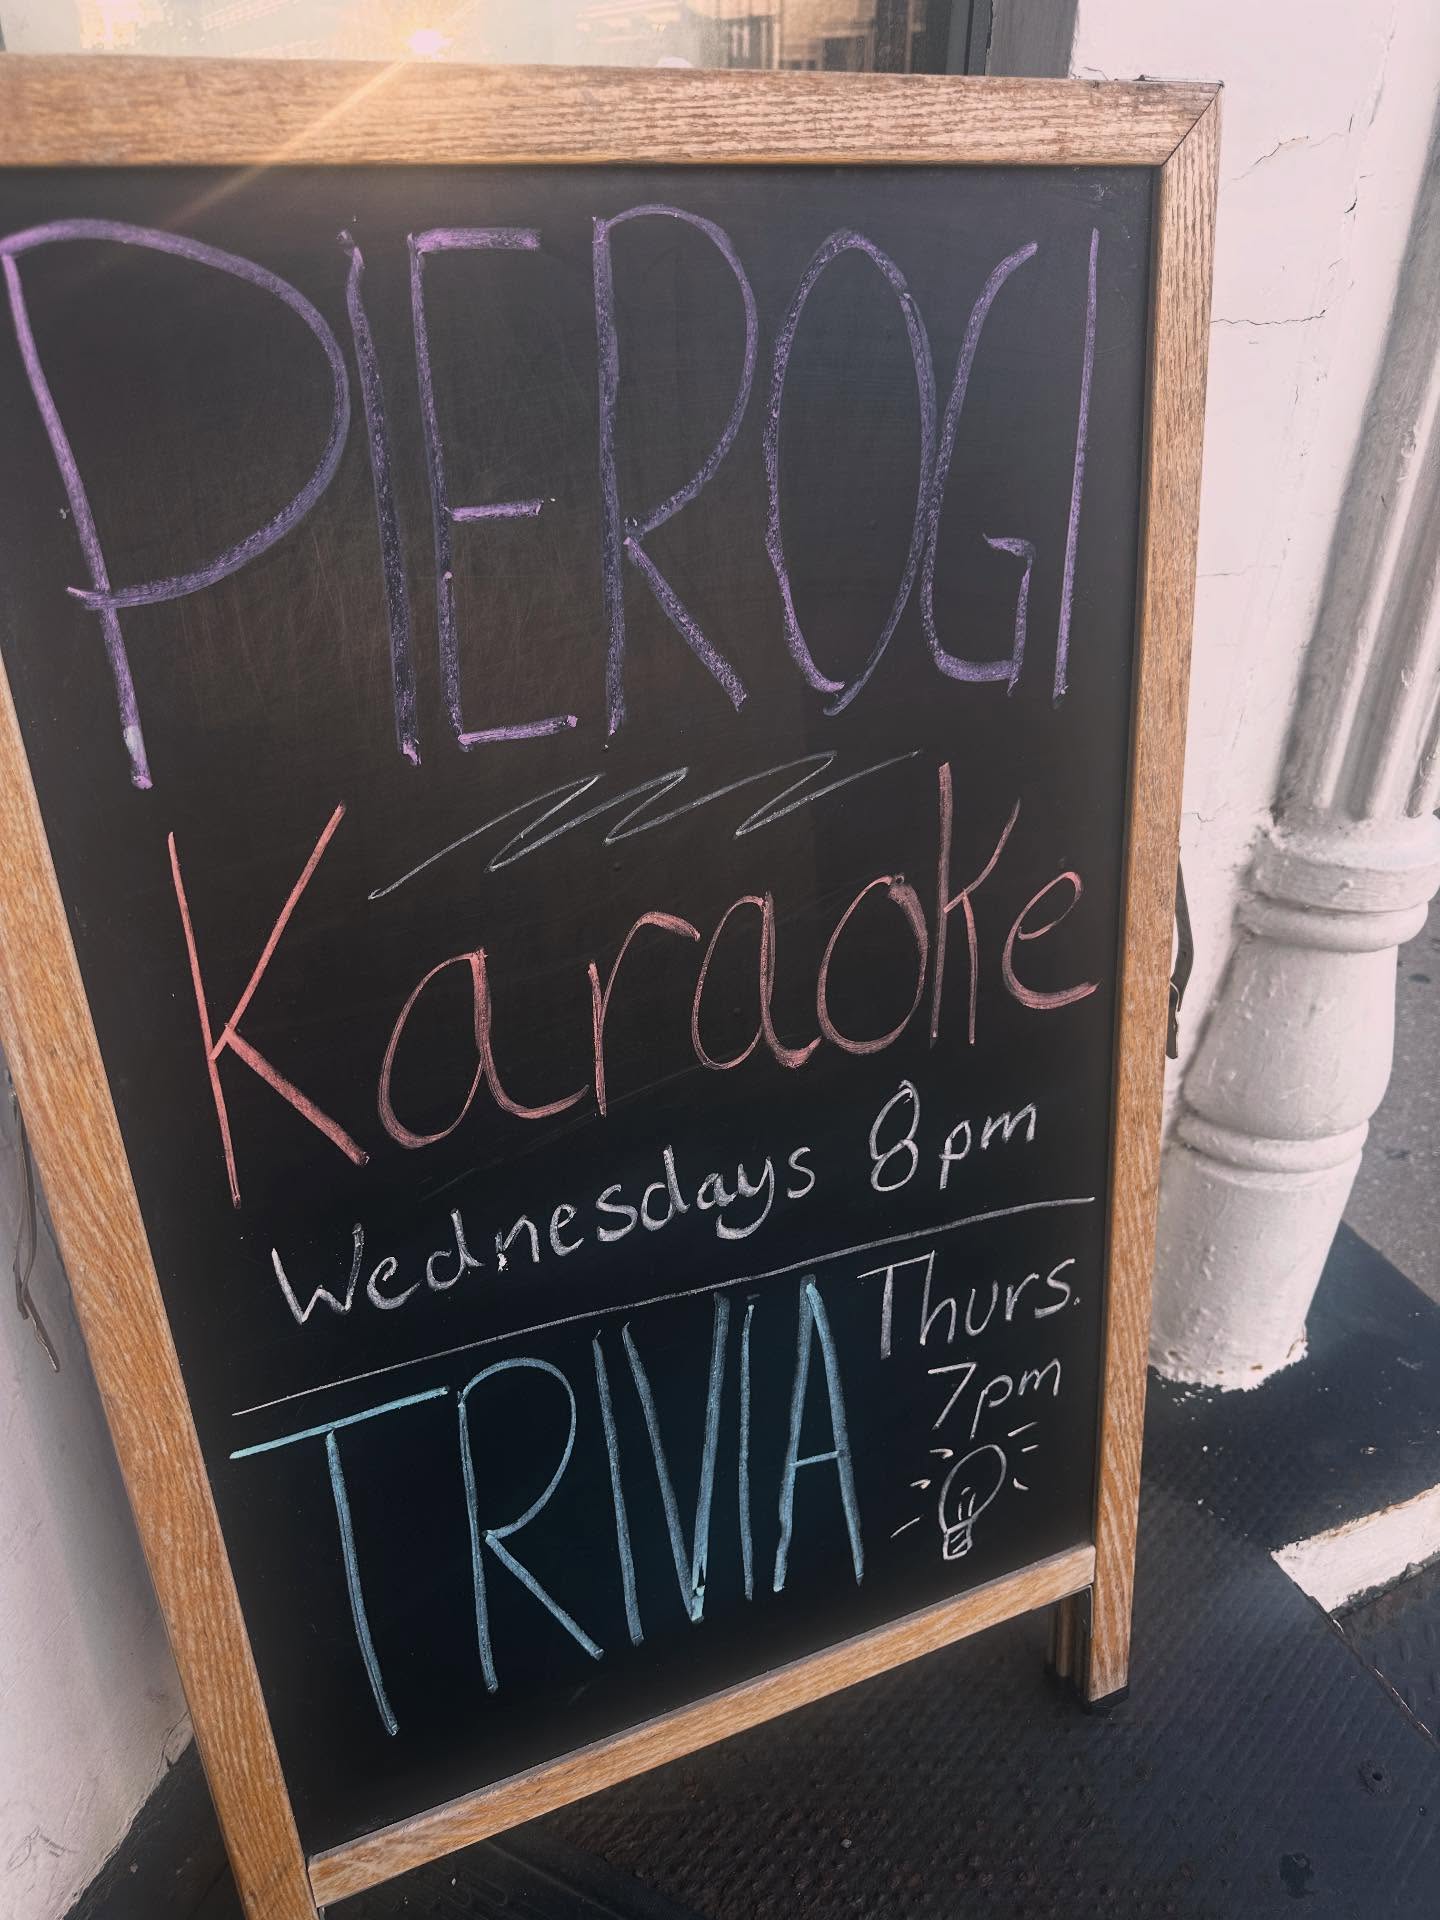 PIEROGI
Karaoke
Wednesdays 8pm
TRIViA
Thurs.
7pm